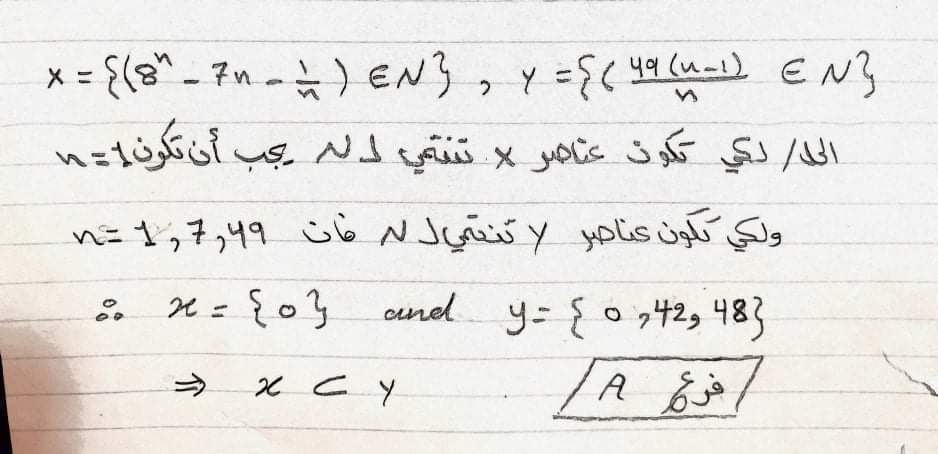 x = {(8ⁿ - 7n - 1/n) ∈ N} , y = {( 49(n-1)/n ∈ N}
الحل/ لكي تكون عناصر x تنتمي لـ N يجب أن تكون n=1
ولكي تكون عناصر y تنتمي لـ N فان n= 1,7,49
∴ x = {0} and y= {0,42,48}
⇒ x ⊂ y فرع A